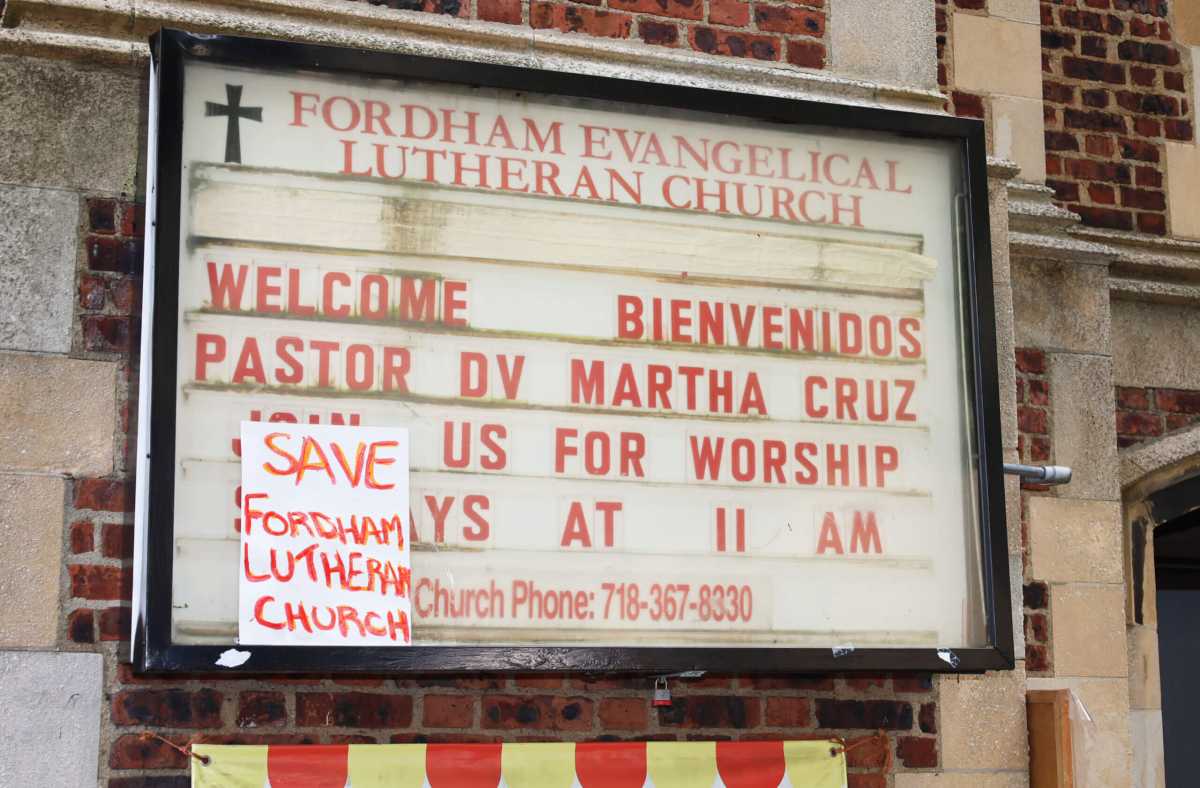 FORDHAM EVANGELICAL
LUTHERAN CHURCH
WELCOME BIENVENIDOS
PASTOR DV MARTHA CRUZ
JOIN US FOR WORSHIP
AYS AT 11 AM
Church Phone: 718-367-8330
SAVE
FORDHAM
LUTHERAN
CHURCH